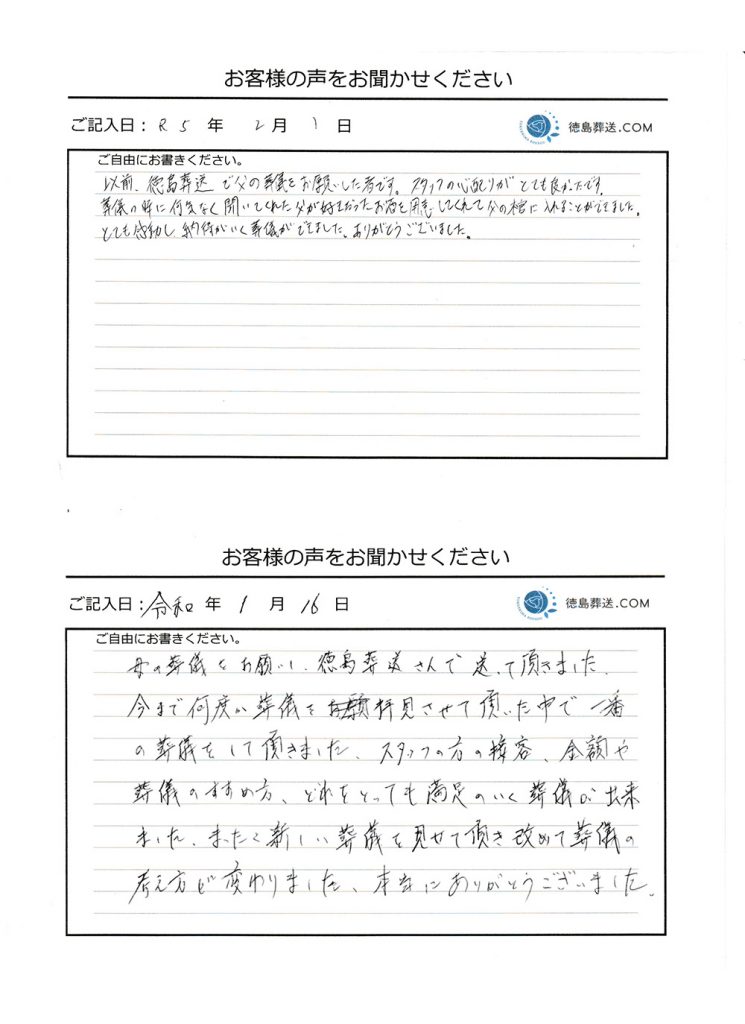 お客様の声をお聞かせください
ご記入日: R5 年 2 月 1 日
徳島葬送.COM
ご自由にお書きください。
以前、徳島葬送で父の葬儀をお願いした者です。スタッフの心配りがとても良かったです。
葬儀の時に何気なく聞いてくれた父が好きだったお酒を用意してくれて父の棺に入れることができました。
とても感動し納得がいく葬儀ができました。ありがとうございました。
お客様の声をお聞かせください
ご記入日: 令和 年 1 月 16 日
徳島葬送.COM
ご自由にお書きください。
母の葬儀をお願いし、徳島葬送さんで送って頂きました。
今まで何度か葬儀を拝見させて頂いた中で一番
の葬儀をして頂きました。スタッフの方の接客、金額や
葬儀のすすめ方、どれをとっても満足のいく葬儀が出来
ました。まったく新しい葬儀を見せて頂き改めて葬儀の
考え方が変わりました、本当にありがとうございました。